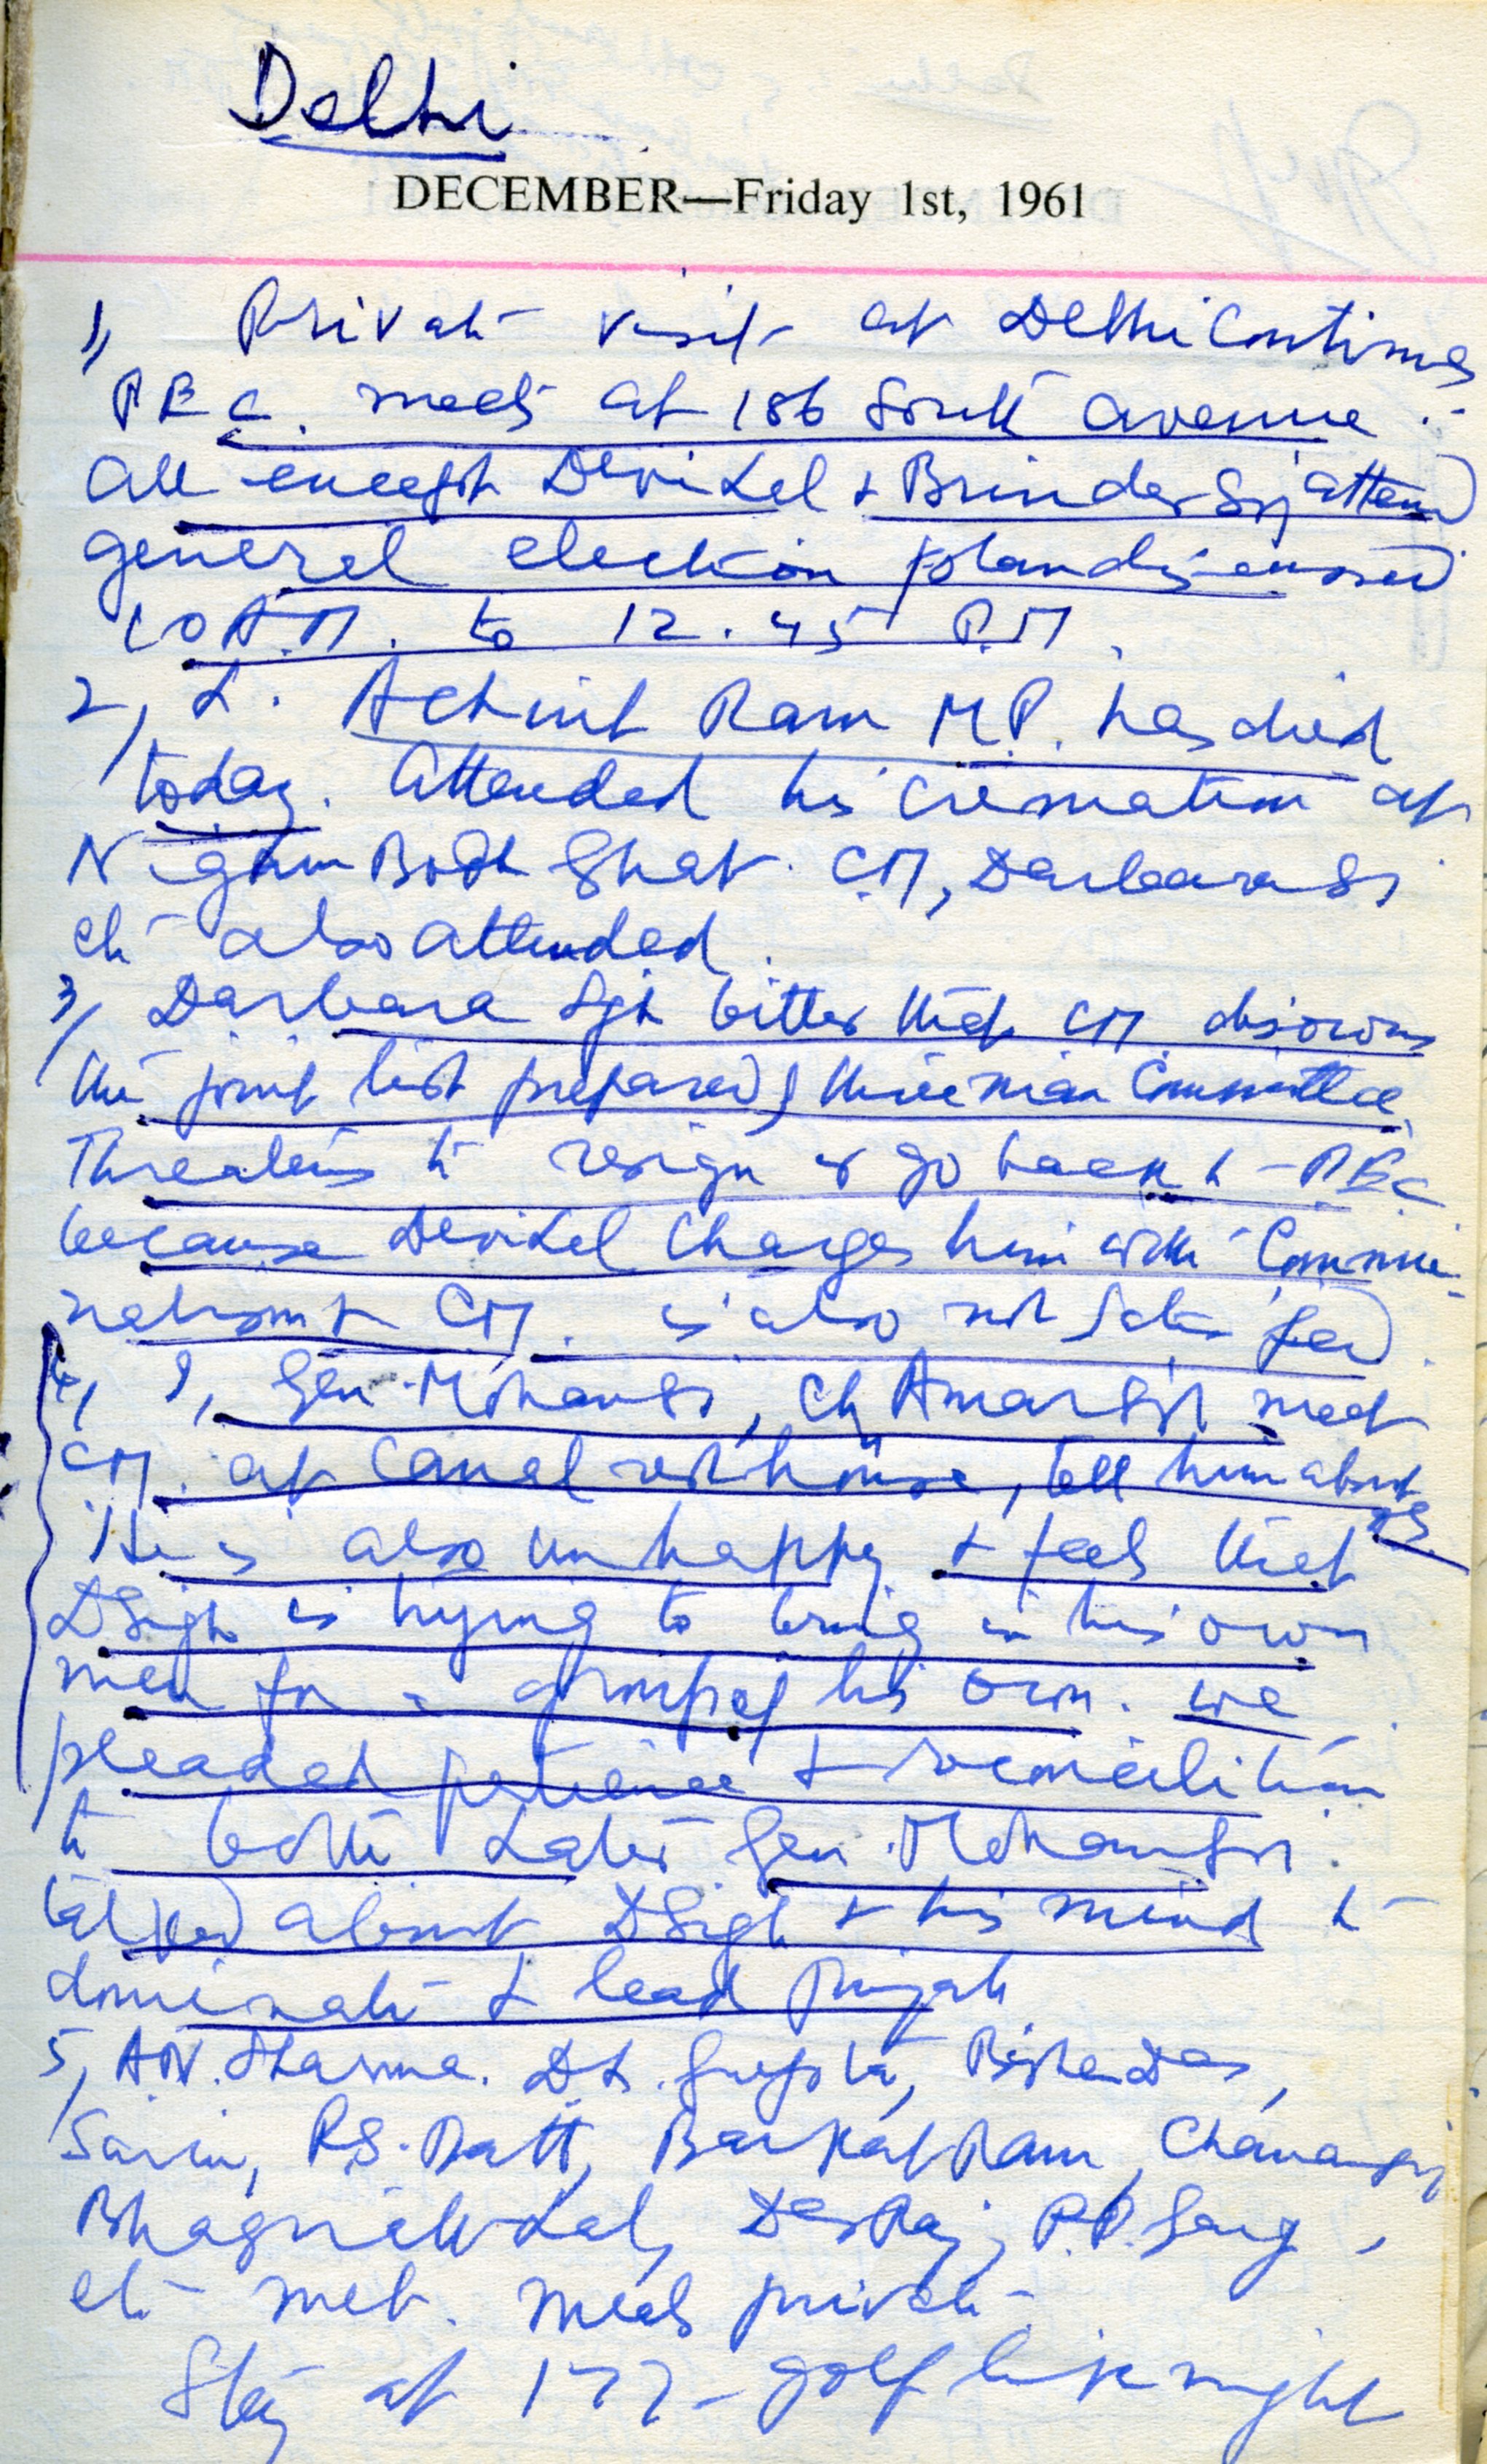 Delhi
DECEMBER—Friday 1st, 1961
1, Private visit at Delhi Continues
PEC. meets at 186 South Avenue.
All except Devi Lal & Brinder Sgh attend
general election plan discussed
10 A.M. to 12.45 P.M.
2, L. Achint Ram M.P. has died
today. Attended his cremation at
Nigham Bodh Ghat. CM, Darbara Si
etc also attended.
3, Darbara Sgh bitter that CM disowns
the joint list prepared by three man Committee.
Threatens to resign & go back to PEC
because Devi Lal Charges him with Commu-
nalism & CM. is also not satisfied.
4, I, Gen. Mohan Si, Ch Amar Sgh meet
CM. at Canal rest house, tell him about
He is also unhappy & feels that
DSingh is trying to bring in his own
men for a group of his own. We
pleaded patience & reconciliation
to both Later Gen. Mohan Sgh.
talked about DSingh & his mind to
dominate & lead Punjab
5, A.N. Sharma. D.L. Gupta, Bishan Das,
Sarin, P.S. Datt, Barkat Ram, Chanan Sgh
Bhagrath Lal, Des Raj, P.P. Garg,
etc met. Meals private.
Stay at 177- golf link night